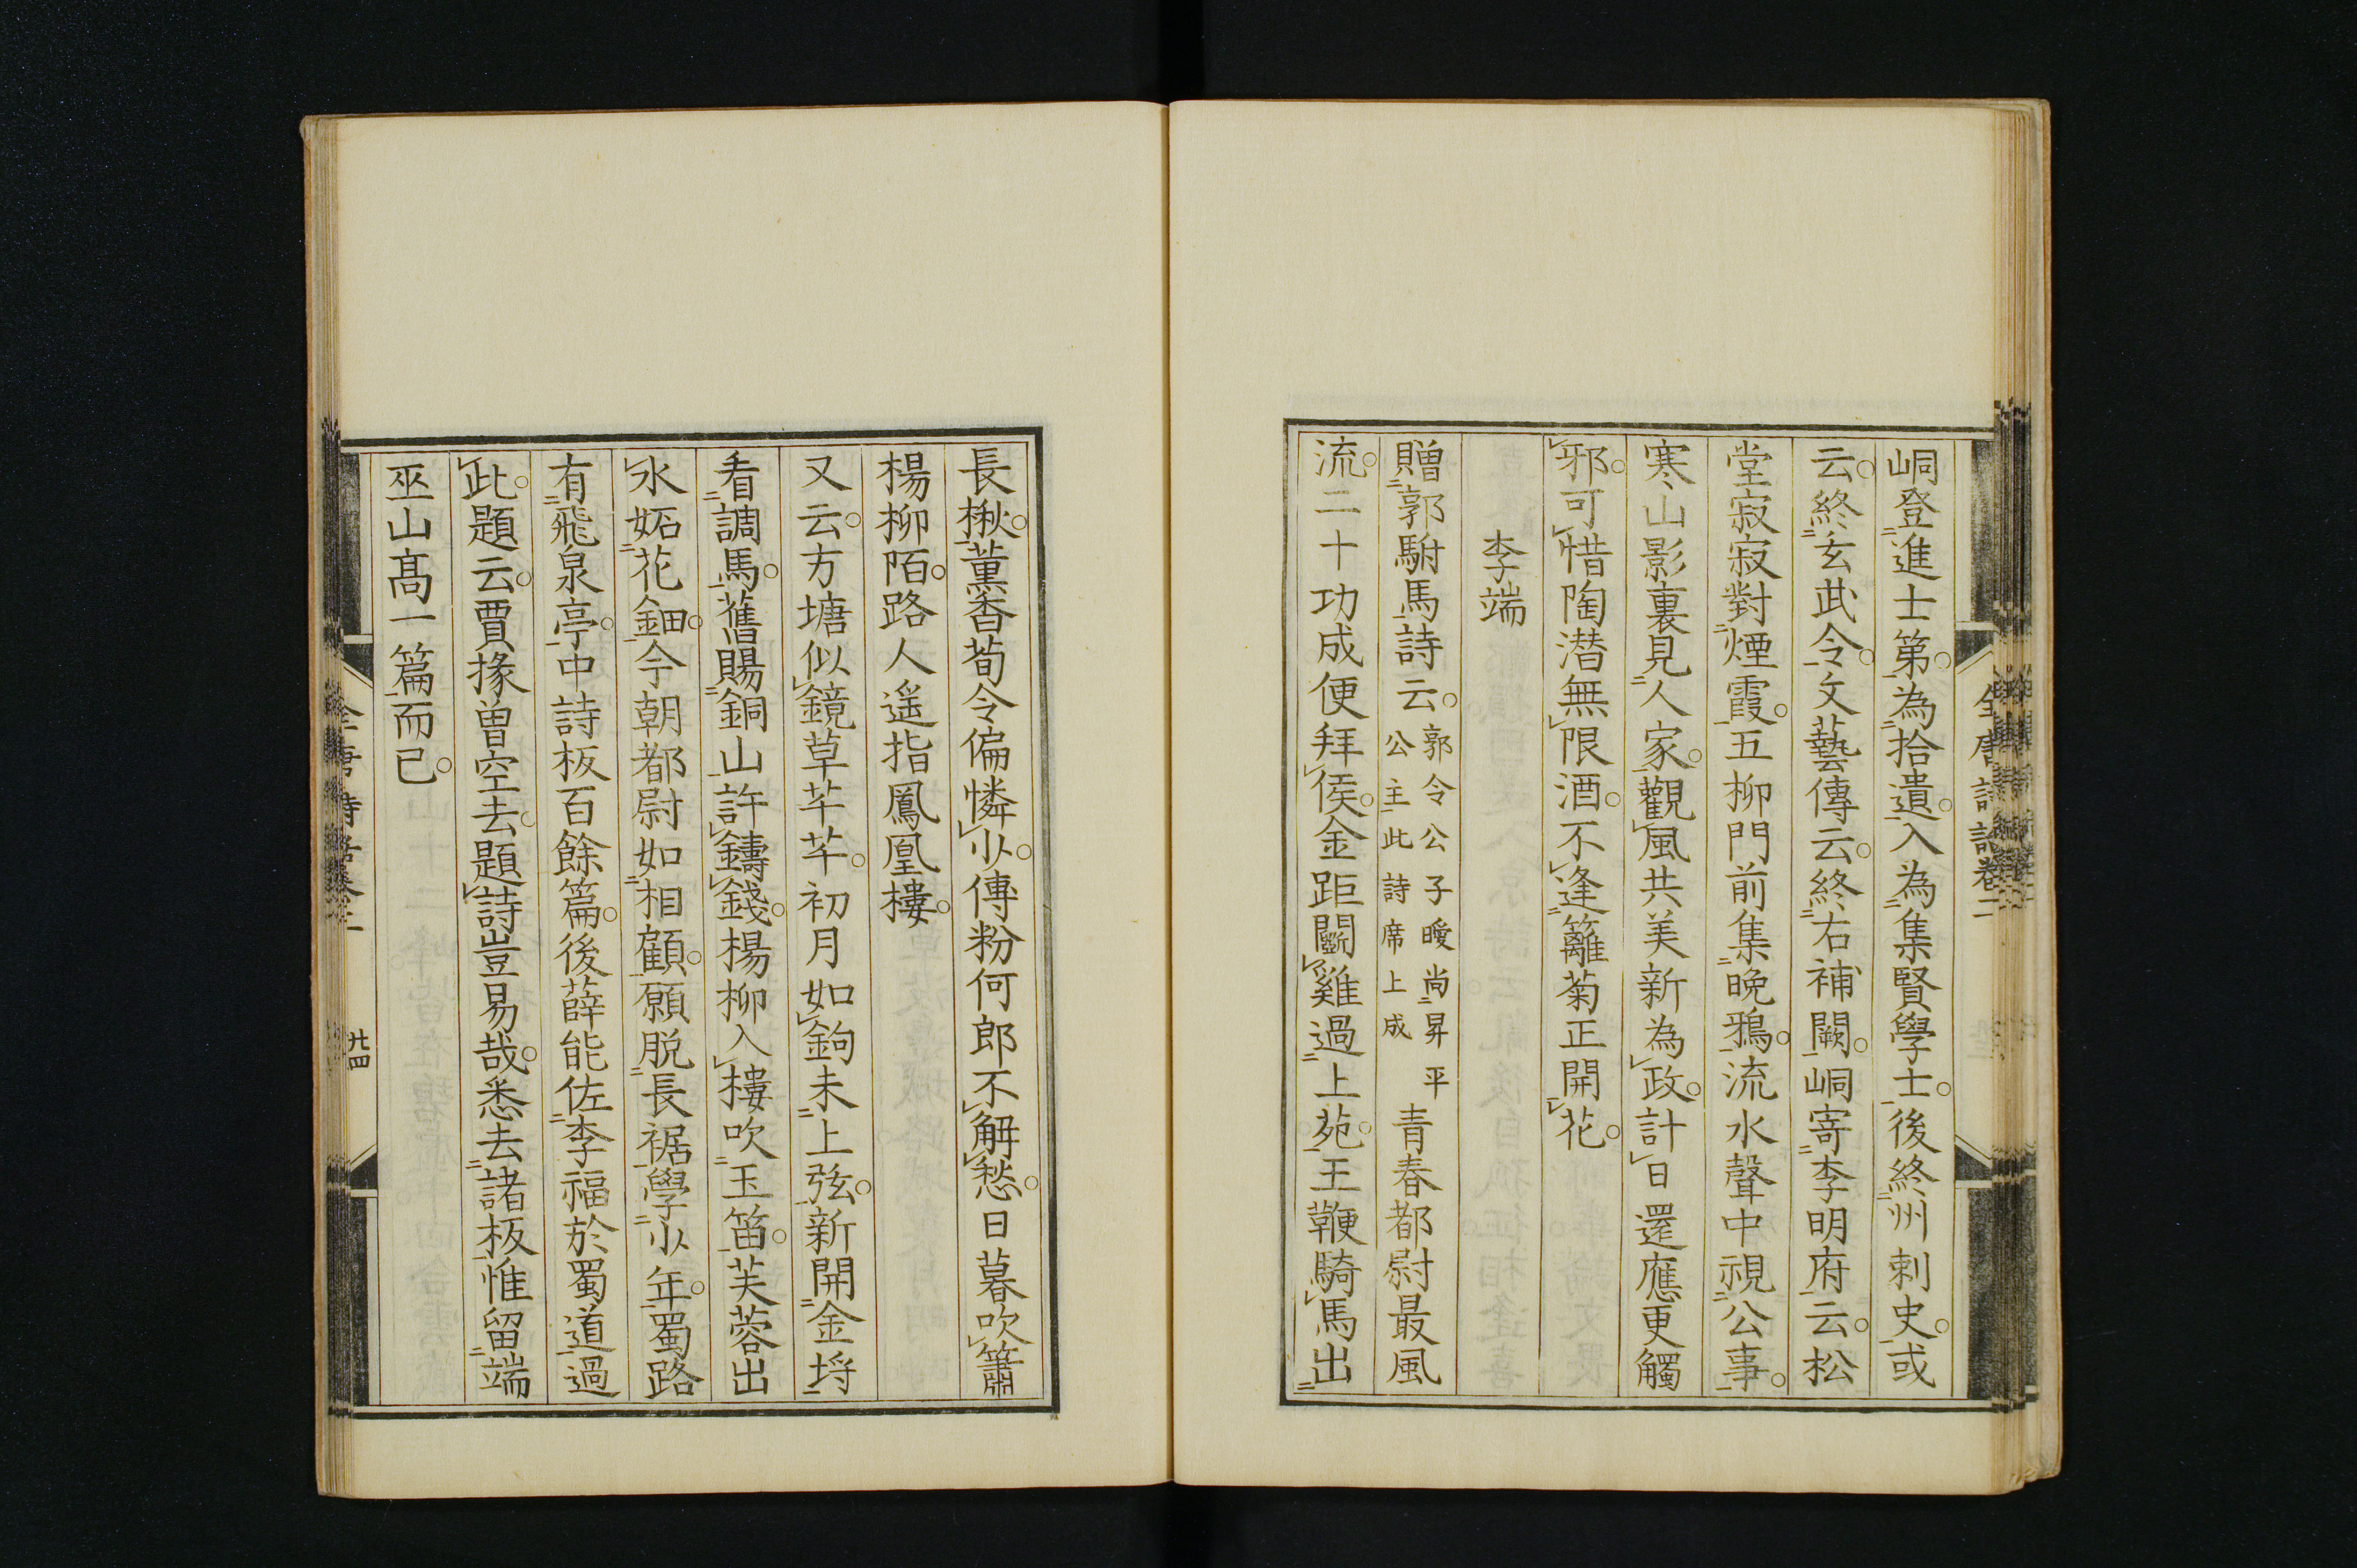 峒登進士第為拾遺入為集賢學士後終州刺史或
云終玄武令文藝傳云終右補闕峒寄李明府云松
堂寂寂對煙霞五柳門前集晚鴉流水聲中視公事
寒山影裏見人家觀風共美新為政計日還應更觸
邪可惜陶潜無限酒不逢籬菊正開花
李端
贈郭駙馬詩云郭令公子曖尚昇平公主此詩席上成青春都尉最風
流二十功成便拜侯金距鬭雞過上苑王鞭騎馬出
長楸薰香荀令偏憐少傅粉何郎不解愁日暮吹簫
楊柳陌路人遥指鳳凰樓
又云方塘似鏡草芊芊初月如鉤未上弦新開金埒
看調馬舊賜銅山許鑄錢楊柳入樓吹玉笛芙蓉出
水妬花鈿今朝都尉如相顧願脱長裾學少年蜀路
有飛泉亭中詩板百餘篇後薛能佐李福於蜀道過
此題云賈掾曾空去題詩豈易哉悉去諸板惟留端
巫山高一篇而已
全唐詩話卷二
廿四